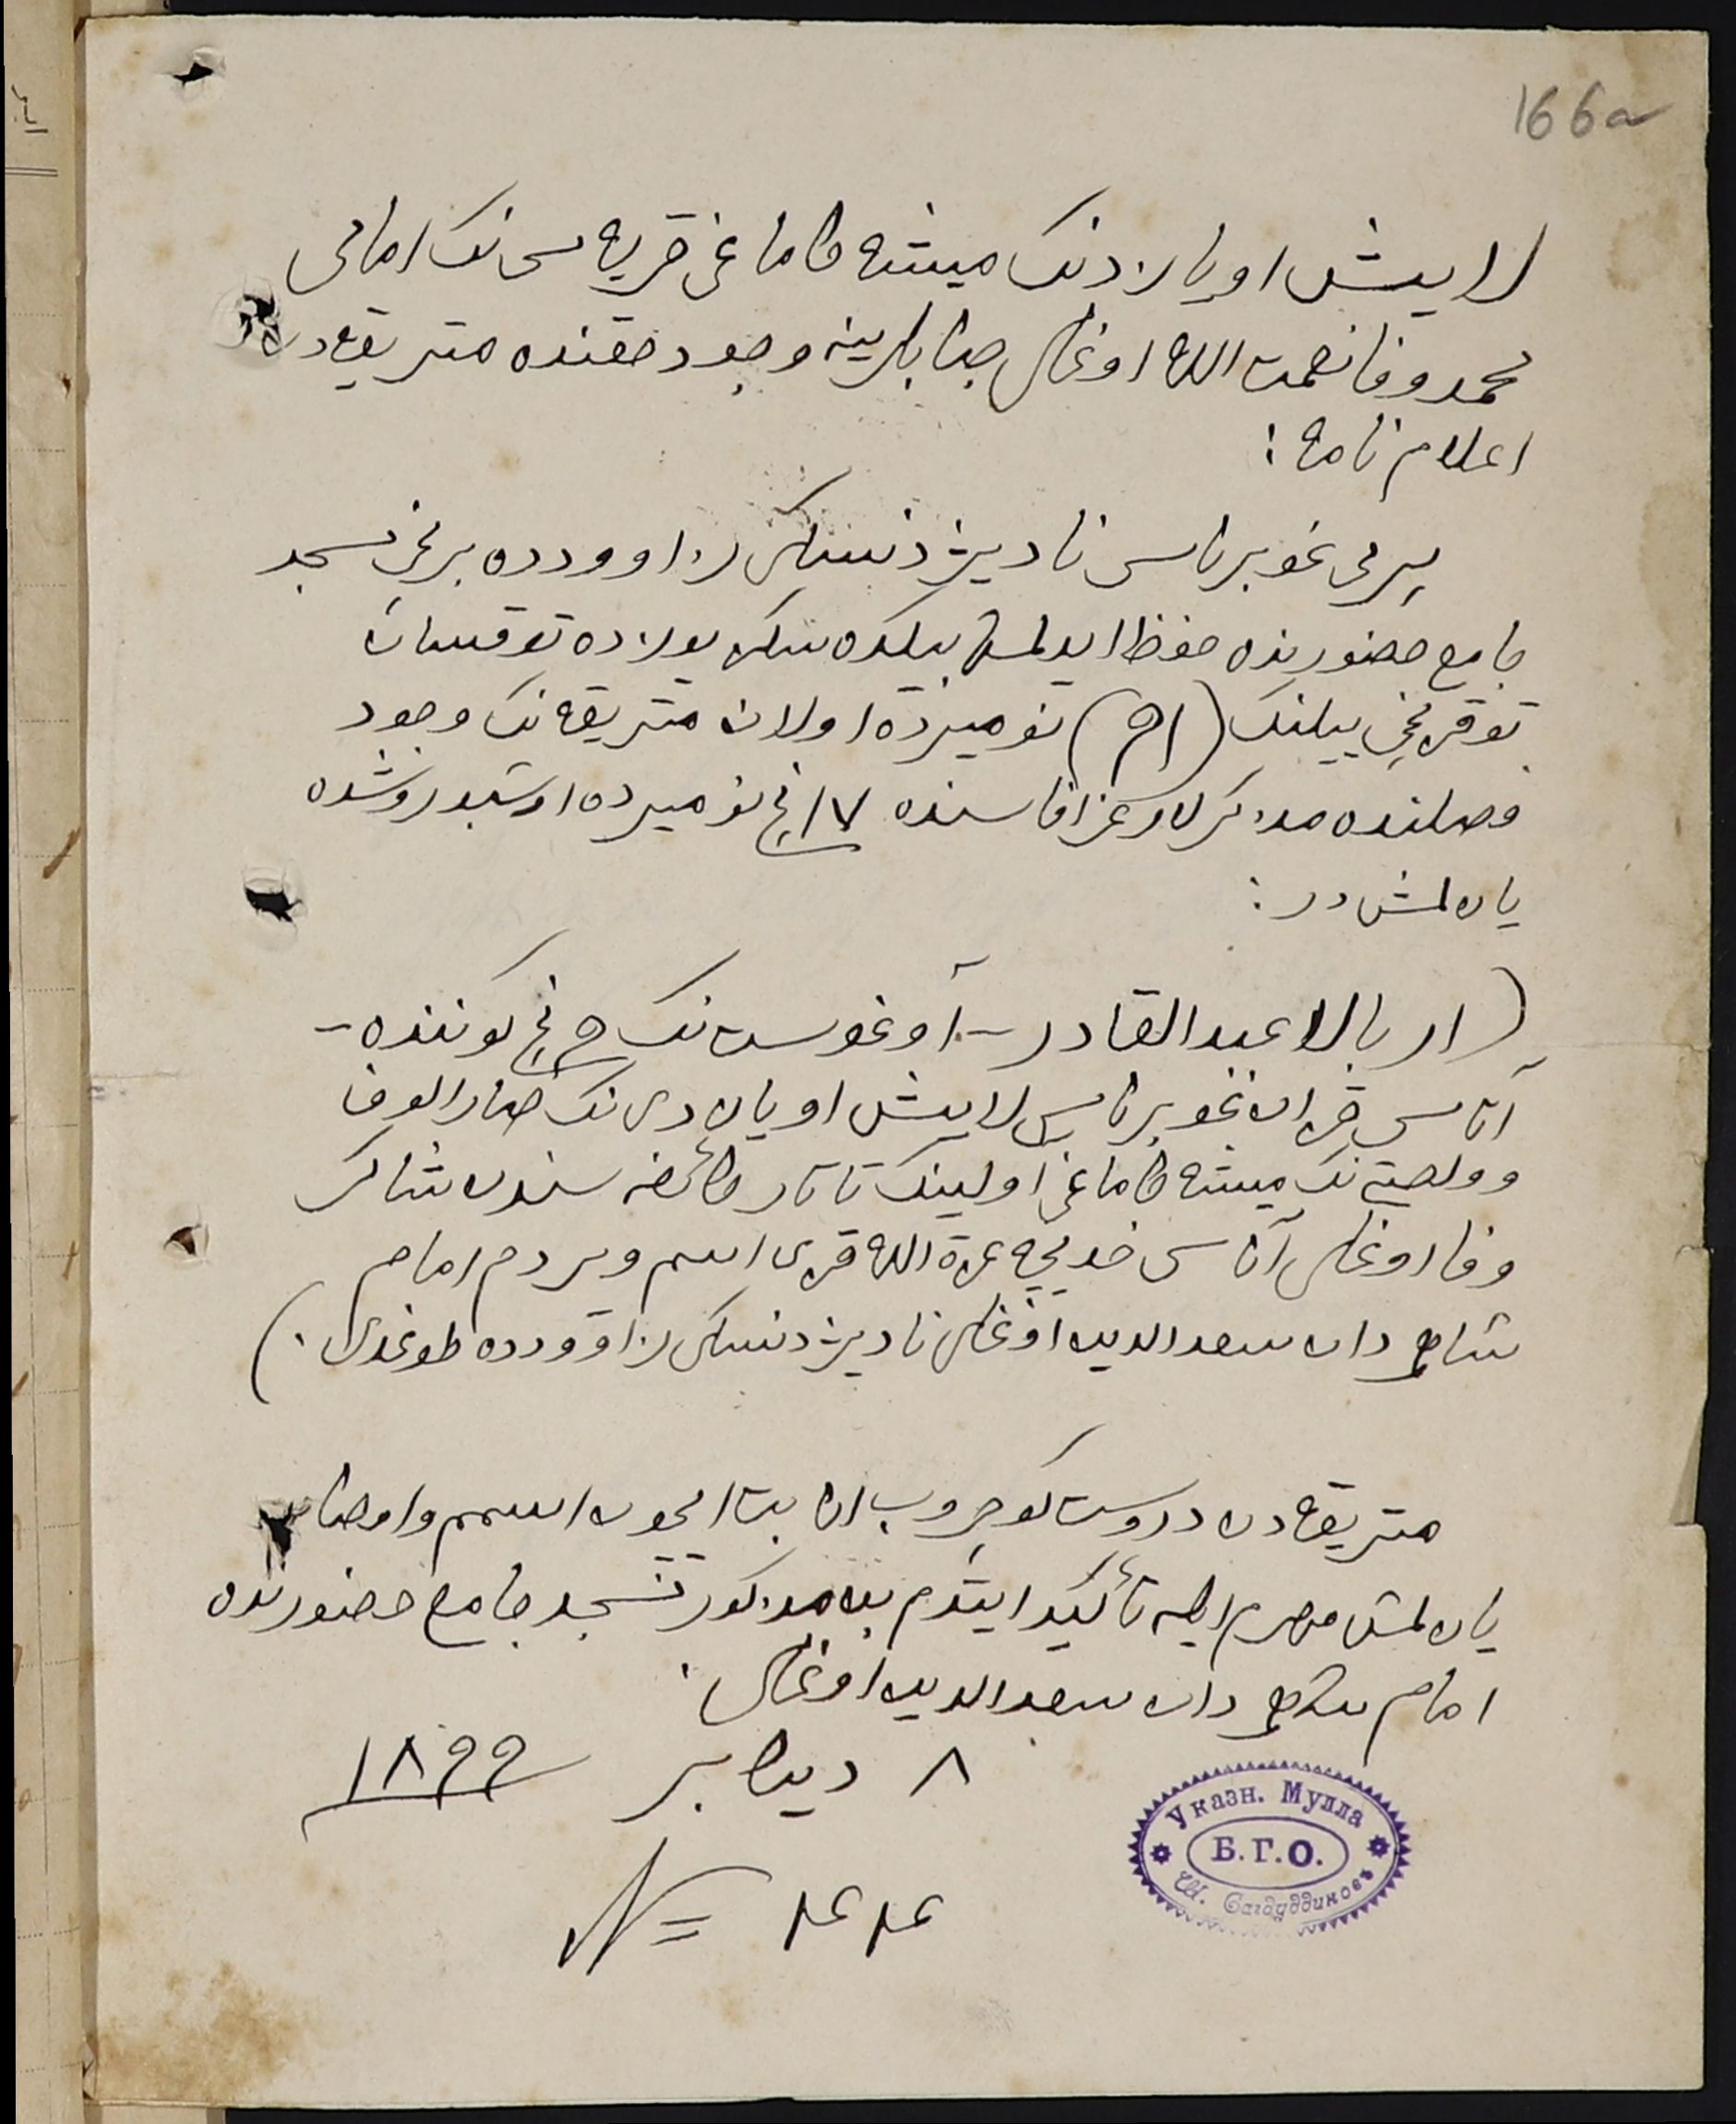 166a
لایش اویازدنک میشه طاماغی قریه سی نک امامی
محمدوفا نعمت الله اوغلی جنابلارینه وجود حقنده متریقه دن
اعلام نامه :
پیرمی غوبرناسی نادیژدنسکی زاوودده برنجی مسجد
جامع حضورنده حفظ ایدلمش بیلده سکز یوزده توقسان
توقزنچی ییلنک (اوّل) نومیرده اولان متریقه نک وجود
فصلنده مذکرلر غرافاسنده ١٧ نچی نومیرده اوشبو روشده
یازلمش در :
(ار بالا عبد القادر - آوغوست نک ٩ نچی کوننده -
آتاسی قزان غوبرناسی لایش اویازی نک
وولصتی نک میشه طاماغی اولینک تاتار شاکر
وفا اوغلی آناسی خدیجه عزة الله قزی اسم ویردم امام
شاه مردان سعد الدین اوغلی نادیژدنسکی زاوودده طوغدی.)
متریقه دن دروست کوچروب اثبات ایچون اسمم و امضام
یازلمش مهرم ایله تأکید ایتدم مذکور مسجد جامع حضورنده
امام شاه مردان سعد الدین اوغلی.
٨ دیکابر ١٨٩٩
№ ٤٤
Указн. Мулла
Б.Г.О.
Ш. Сагдуддиновъ